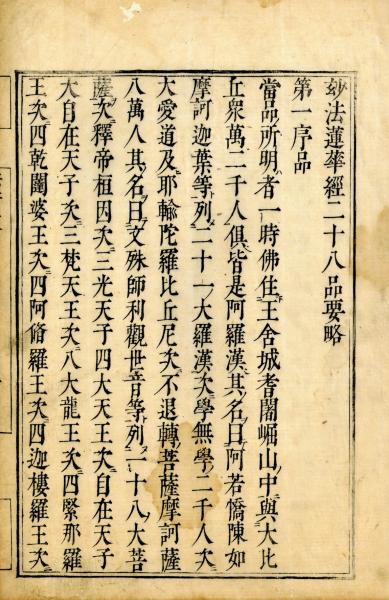 玅法蓮華經二十八品要略
第一序品
當品所明者一時佛住王舍城耆闍崛山中與大比
丘眾萬二千人俱皆是阿羅漢其名曰阿若憍陳如
摩訶迦葉等列二十一大羅漢次學無學二千人次
大愛道及耶輸陀羅比丘尼次不退轉菩薩摩訶薩
八萬人其名曰文殊師利觀世音等列一十八大菩
薩次釋帝桓因次三光天子四大天王次自在天子
大自在天子次三梵天王次八大龍王次四緊那羅
王次四乾闥婆王次四阿脩羅王次四迦樓羅王次